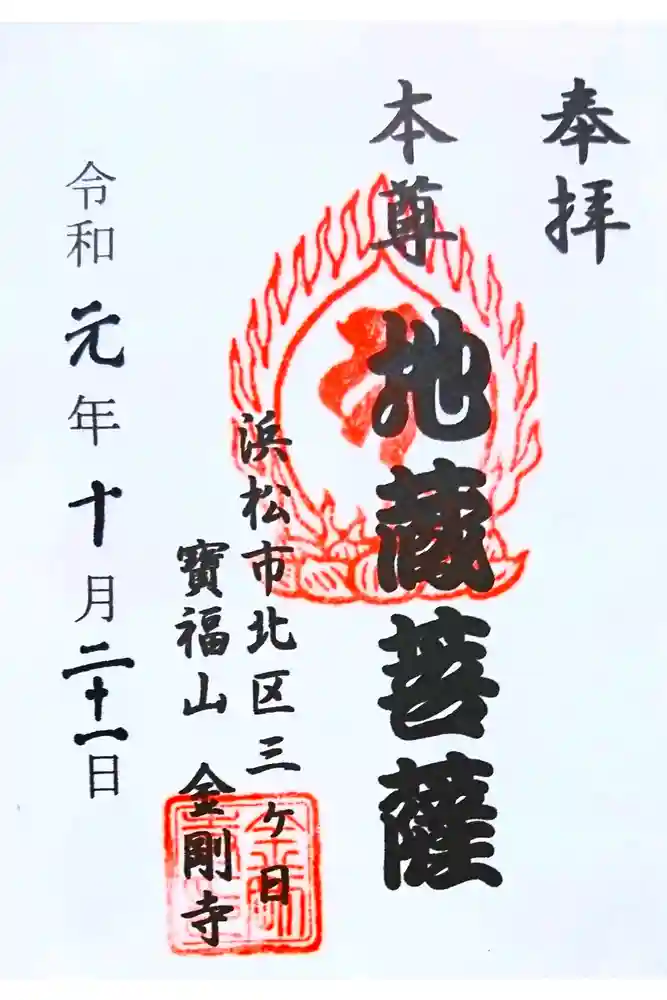 奉拝
本尊
地蔵菩薩
浜松市北区三ヶ日
寳福山 金剛寺
令和元年十月二十一日